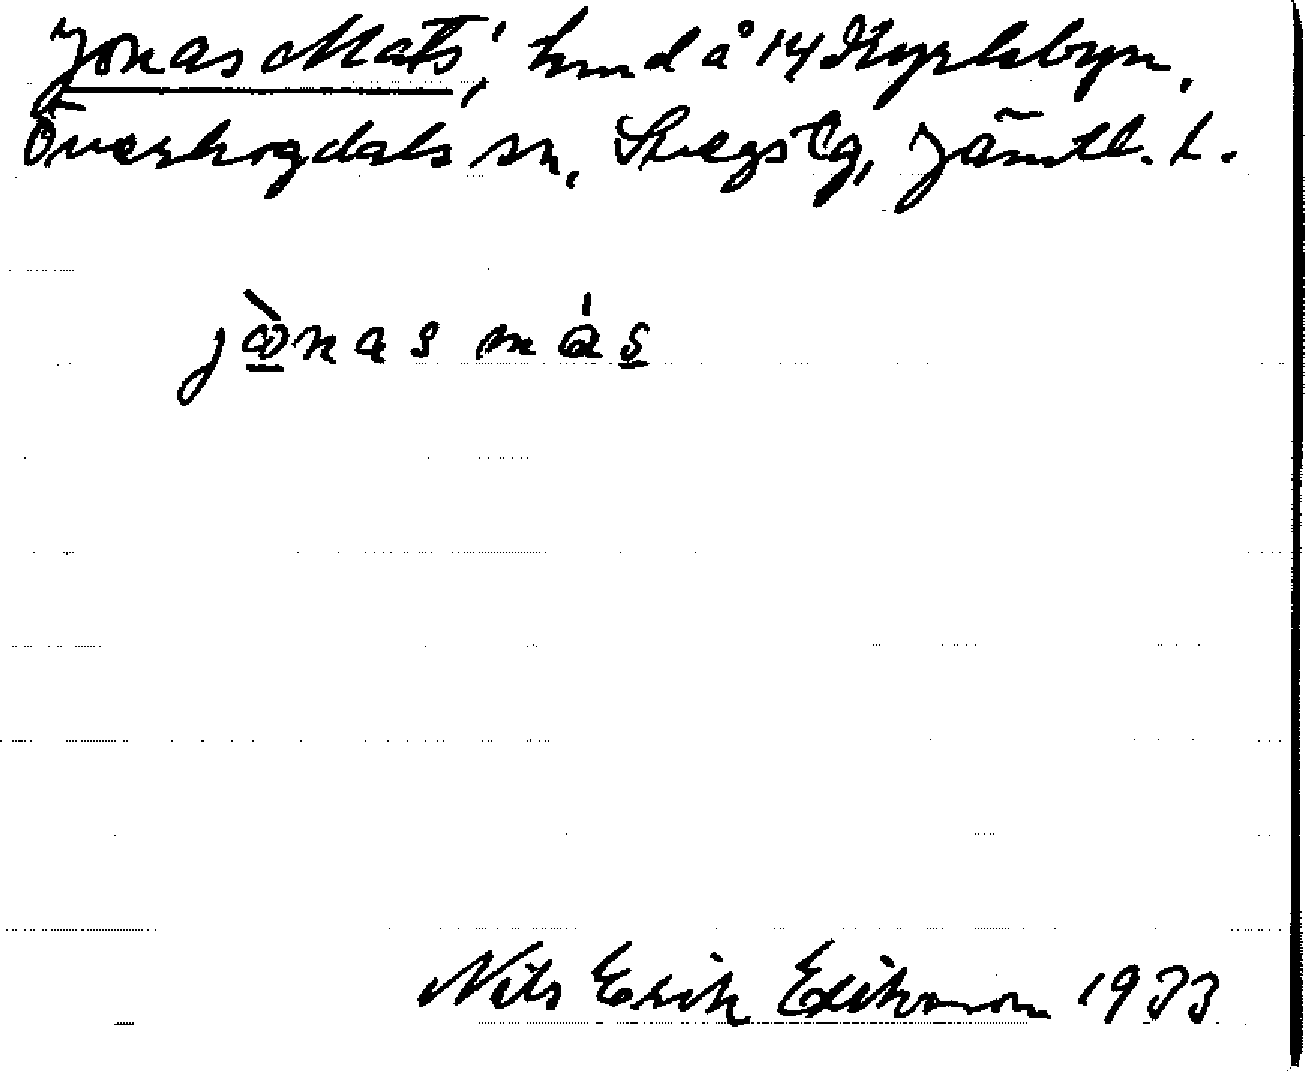 Jonas Mats', hmd å 14 Kyrkbyn,
Överhogdals sn, Svegs tg, Jämtl. l.
jònas más
Nils Erik Eriksson 1933